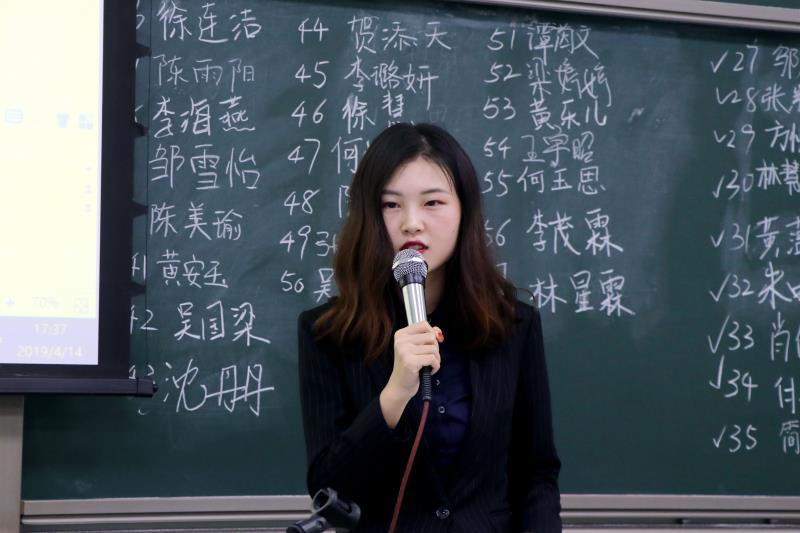 徐连洁
陈雨阳
李海燕
邹雪怡
陈美瑜
41 黄安玉
42 吴国梁
沈丹丹
44 贺添天
45 李璐妍
46 徐慧
47 何
48
49
50 吴
51 谭茵文
52 梁婷婷
53 黄乐儿
54 王宇昭
55 何玉恩
李茂霖
林星霖
√27 邹
√28 张
√29 方
√30 林
√31 黄
√32 朱
√33 肖
√34
√35 简
70%
17:37
2019/4/14